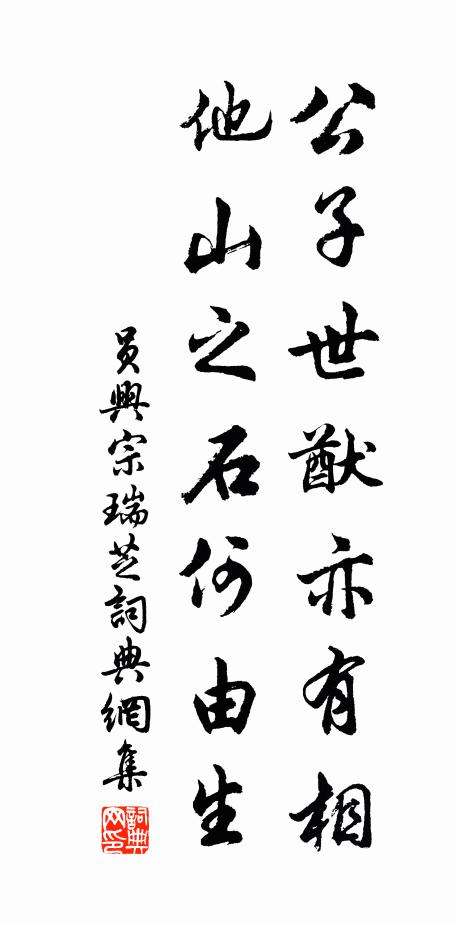 公子世猷亦有相
他山之石何由生
員興宗瑞芝詞典網集
詞典
网印